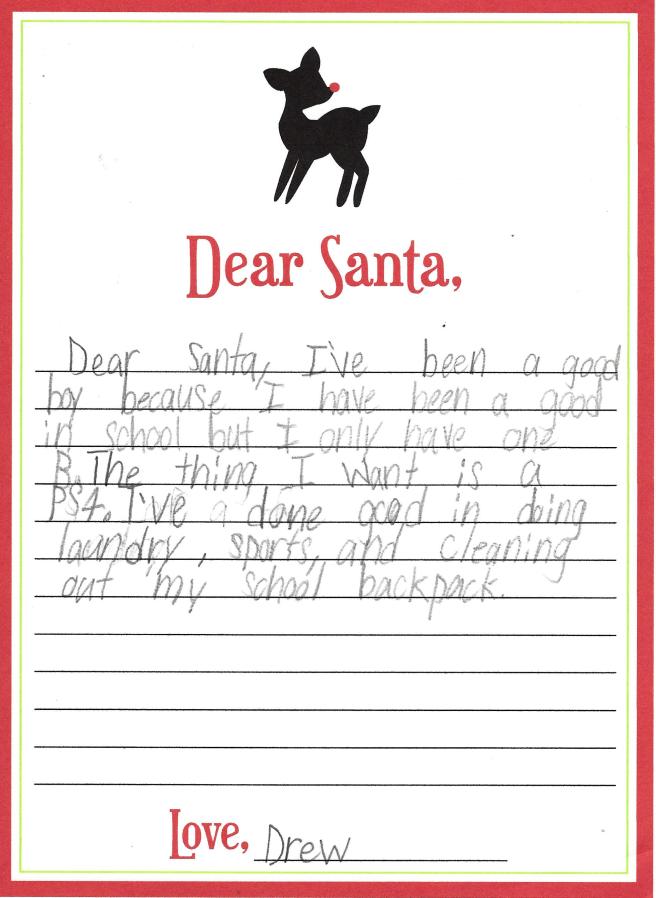 Dear Santa,
Dear Santa, I've been a good
boy because I have been a good
in school but I only have one
B. The thing I want is a
PS4. I've a done good in doing
laundry, sports, and cleaning
out my school backpack.
Love, Drew